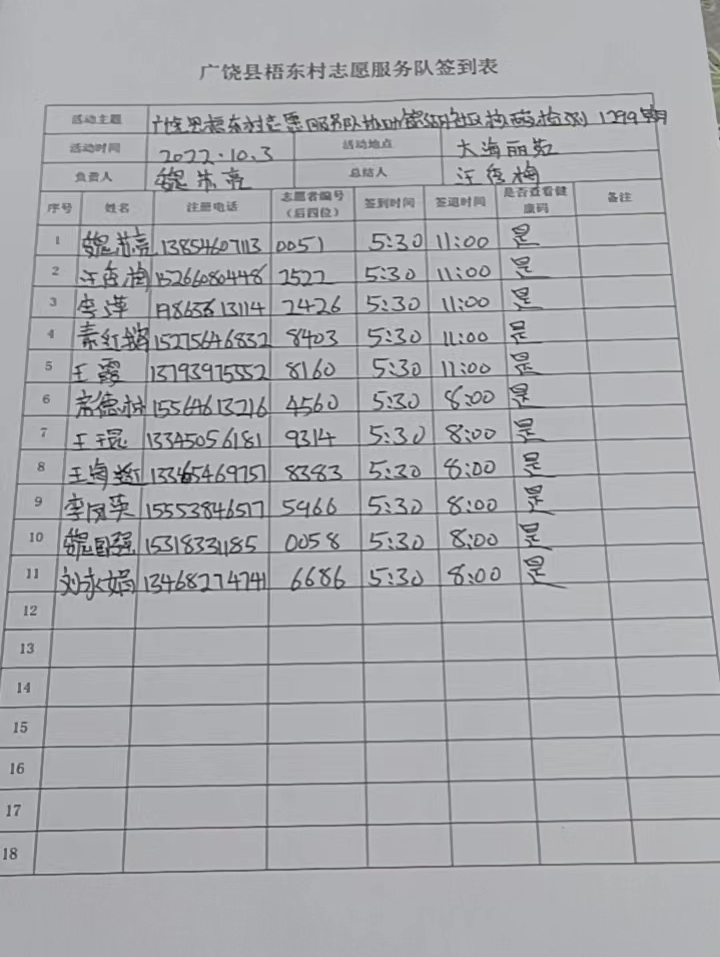 广饶县梧东村志愿服务队签到表
活动主题 广饶县梧东村志愿服务队协助锦湖社区核酸检测1299期
活动时间 2022.10.3 活动地点 大海丽苑
负责人 魏苏亮 总结人 汪秀梅
序号 姓名 注册电话 志愿者编号（后四位） 签到时间 签退时间 是否查看健康码 备注
1 魏苏亮 13854607113 0051 5:30 11:00 是
2 汪秀梅 15266080448 2522 5:30 11:00 是
3 李萍 2426 5:30 11:00 是
4 15275646832 8403 5:30 11:00 是
5 王霞 13793975552 8160 5:30 11:00 是
6 常德林 15564613216 4560 5:30 8:00 是
7 王琨 13345056181 9314 5:30 8:00 是
8 王海红 13346546975 8383 5:30 8:00 是
9 李凤英 15553846517 5966 5:30 8:00 是
10 魏国强 15318331185 0058 5:30 8:00 是
11 刘永娟 13468274741 6686 5:30 8:00 是
12
13
14
15
16
17
18